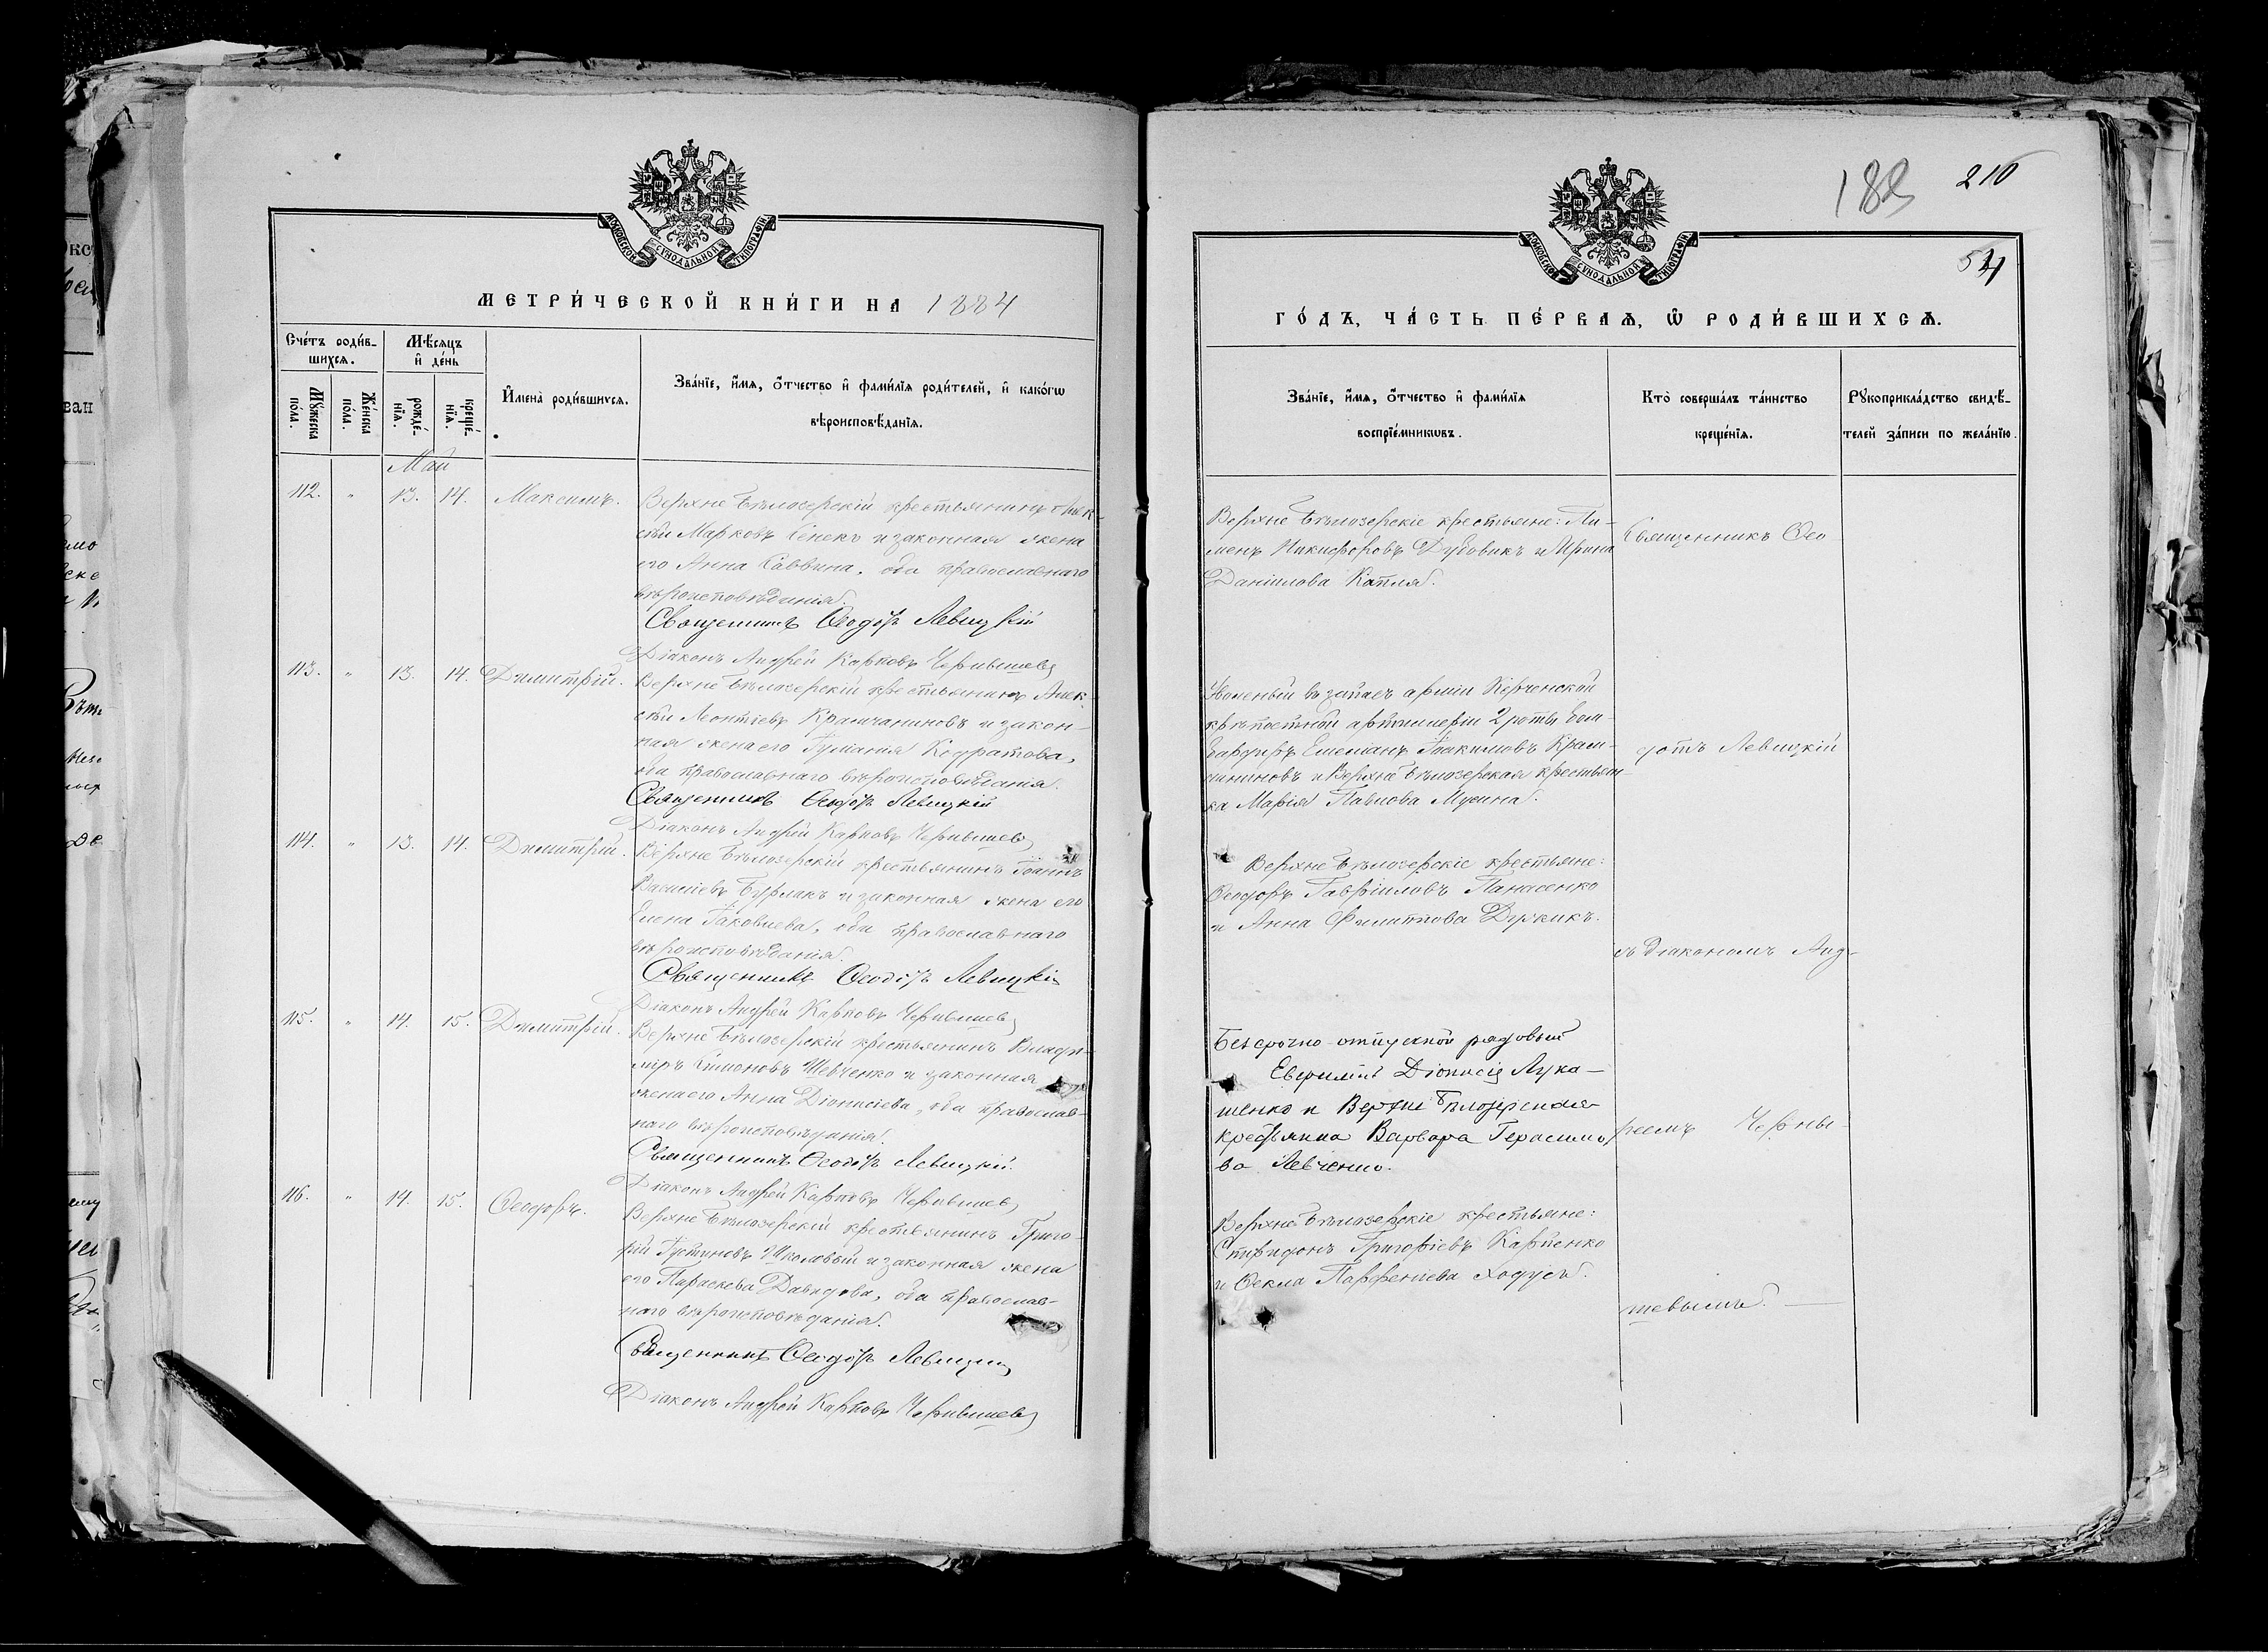 МОСКОВСКОЙ СУНОДАЛЬНОЙ ТИПОГРАФІИ
МЕТРИ́ЧЕСКОЙ КНИ́ГИ НА 1884
Сче́тъ роди́в-
шихся.
Му́жеска
по́ла.
Же́нска
по́ла.
Мѣ́сяцъ
и҆ де́нь
рожде́-
нїя.
креще́-
нїя.
И҆мена̀ роди́вшихся.
Зва́нїе, и҆́мя, ѻ҆́тчество и҆ фами́лїя роди́телей, и҆ како́гѡ
вѣроисповѣ́данїя.
Май
112. " 13. 14. Максимъ.
Верхне Бѣлозерскій крестьянинъ Алек-
сѣй Марковъ Сенекъ и законная жена
его Анна Саввина, оба православнаго
вѣроисповѣданія.
Священникъ Ѳеодоръ Левицкій
Діаконъ Андрей Карповъ Чернышевъ
113. " 13. 14. Димитрій.
Верхне Бѣлозерскій крестьянинъ Алек-
сѣй Леонтіевъ Крамчаниновъ и закон-
ная жена его Гуліанія Кодратова,
оба православнаго вѣроисповѣданія.
Священникъ Ѳеодоръ Левицкій
Діаконъ Андрей Карповъ Чернышевъ
114. " 13. 14. Димитрій.
Верхне Бѣлозерскій крестьянинъ Іоаннъ
Василіевъ Бурлакъ и законная жена его
Елена Іаковлева, оба православнаго
вѣроисповѣданія.
Священникъ Ѳеодоръ Левицкій
Діаконъ Андрей Карповъ Чернышевъ
115. " 14. 15. Димитрій.
Верхне Бѣлозерскій крестьянинъ Влади-
міръ Симоновъ Шевченко и законная
жена его Анна Діонисіева, оба православ-
наго вѣроисповѣданія.
Священникъ Ѳеодоръ Левицкій.
Діаконъ Андрей Карповъ Чернышевъ
116. " 14. 15. Ѳеодоръ.
Верхне Бѣлозерскій крестьянинъ Григо-
рій Іустиновъ Школовый и законная жена
его Параскева Давидова, оба православ-
наго вѣроисповѣданія.
Священникъ Ѳеодоръ Левицкій
Діаконъ Андрей Карповъ Чернышевъ
210
МОСКОВСКОЙ СУНОДАЛЬНОЙ ТИПОГРАФІИ
ГО́ДЪ, ЧА́СТЬ ПЕ́РВАЯ, Ѡ҆ РОДИ́ВШИХСЯ.
Зва́нїе, и҆́мя, ѻ҆́тчество и҆ фами́лїя
воспрїе́мникѡвъ.
Кто̀ соверша́лъ та́инство
креще́нїя.
Рꙋкоприкла́дство свидѣ́-
телей за́писи по жела́нїю.
Верхне Бѣлозерскіе крестьяне: Пи-
менъ Никифоровъ Дубовикъ и Ирина
Даніилова Капля.
Священникъ Ѳео-
Уволеный въ запасъ арміи Керченской
крѣпостной артиллеріи 2 роты бом-
бардиръ Емеліанъ Іоакимовъ Крам-
чаниновъ и Верхне Бѣлозерская крестьян-
ка Марія Павлова Мусина.
доръ Левицкій
Верхне Бѣлозерскіе крестьяне:
Ѳеодоръ Гавріиловъ Панасенко
и Анна Филиппова Дужикъ.
съ діакономъ Анд-
Безсрочно отпускной рядовый
Евфимій Діонисія Лука-
шенко и Верхне Бѣлозерская
крестьянка Варвара Герасимо-
ва Левченко.
реемъ Черны-
Верхне Бѣлозерскіе крестьяне:
Спиридонъ Григоріевъ Карпенко
и Ѳекла Парфеніева Ходусъ.
шевымъ.